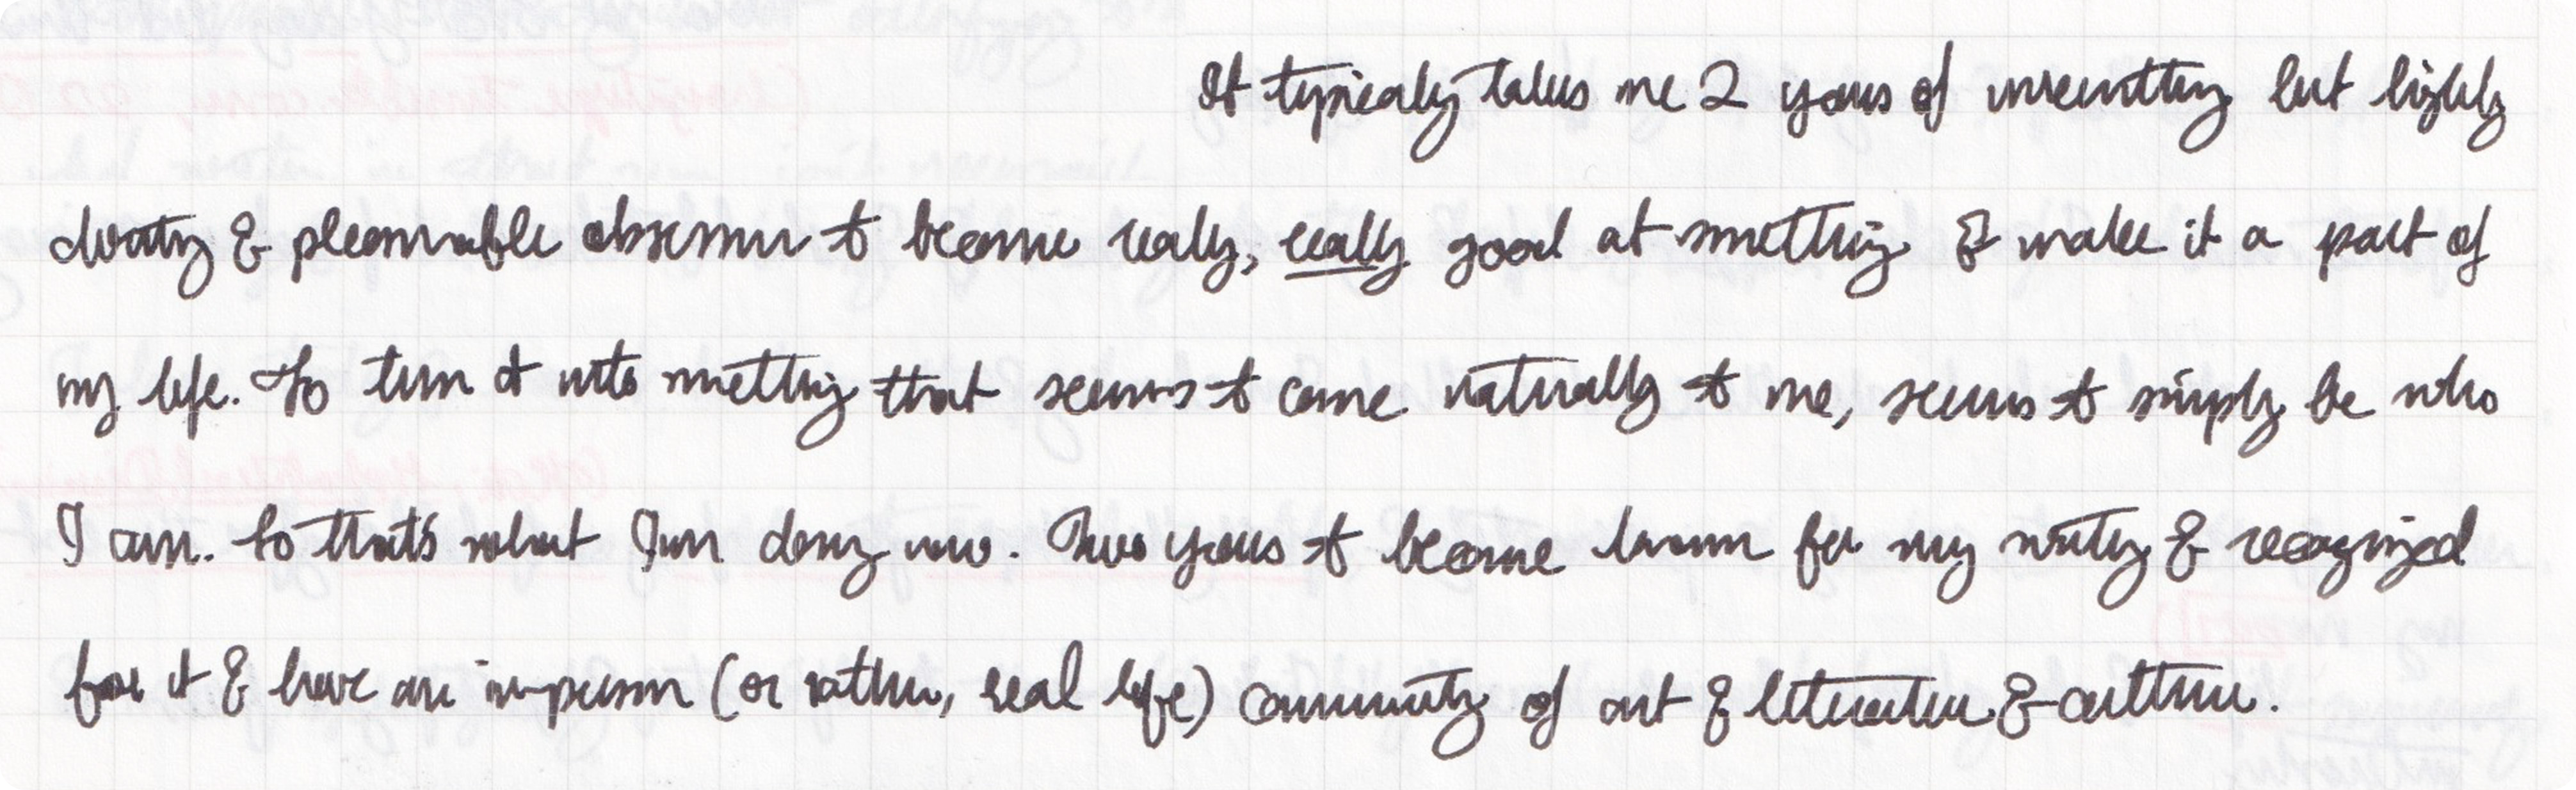 It typically takes me 2 years of unremitting but highly
& pleasurable obsession to become really, really good at something & make it a part of
my life. To turn it into something that seems to come naturally to me, seems to simply be who
I am. So that's what I'm doing now. Two years to become known for my writing & recognized
for it & have an in-person (or rather, real life) community of art & literature & culture.